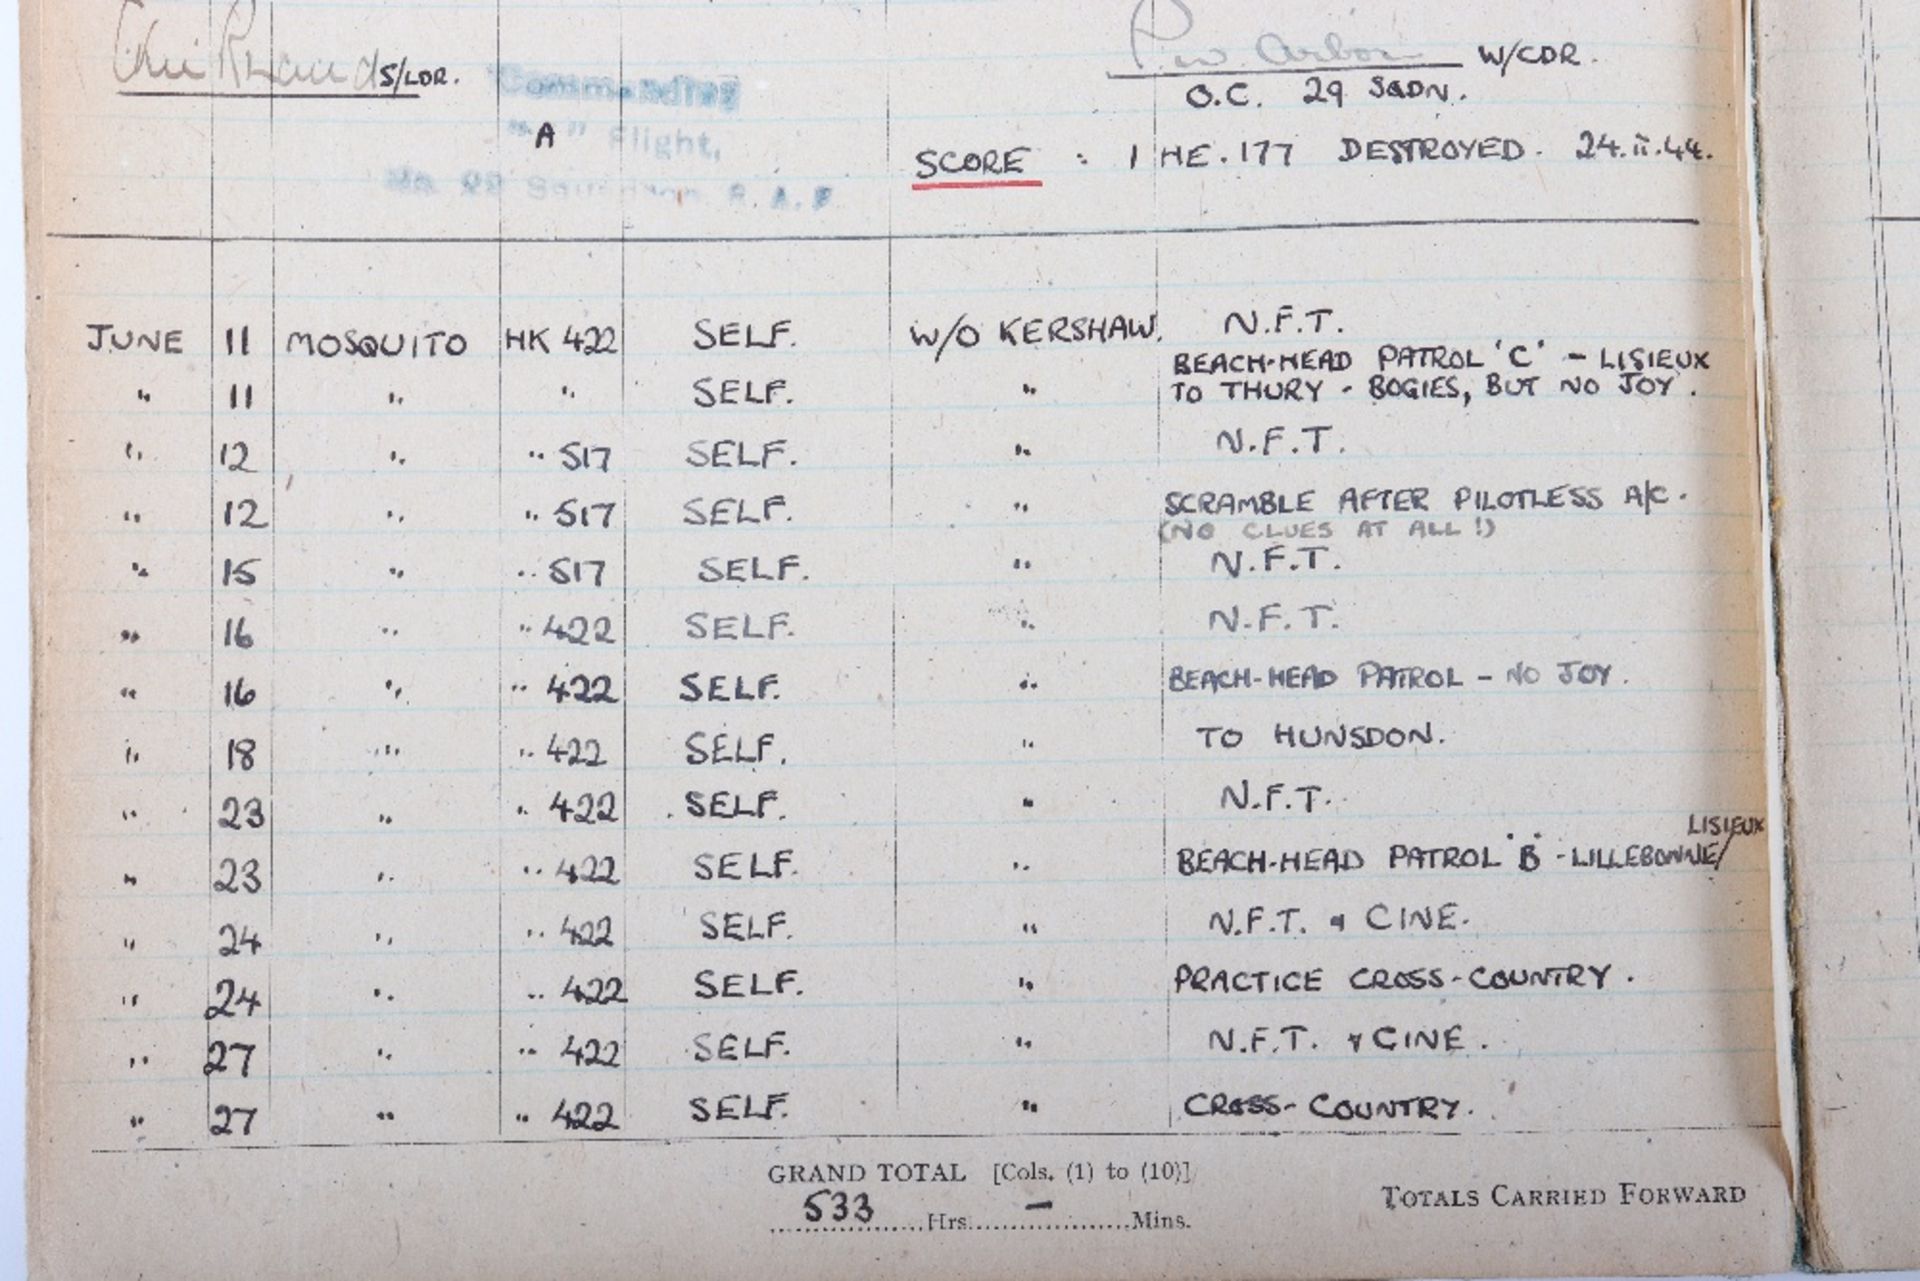 S/LDR. Commanding
"A" Flight,
R.A.F
P.W. Arbon W/CDR.
O.C. 29 SQDN.
SCORE : 1 HE.177 DESTROYED. 24.II.44.
JUNE 11 MOSQUITO HK 422 SELF. W/O KERSHAW. N.F.T.
" 11 " " SELF. " BEACH-HEAD PATROL 'C' - LISIEUX
TO THURY - BOGIES, BUT NO JOY.
" 12 " " 517 SELF. " N.F.T.
" 12 " " 517 SELF. " SCRAMBLE AFTER PILOTLESS A/C.
(NO CLUES AT ALL!)
" 15 " " 517 SELF. " N.F.T.
" 16 " " 422 SELF. " N.F.T.
" 16 " " 422 SELF. " BEACH-HEAD PATROL - NO JOY.
" 18 " " 422 SELF. " TO HUNSDON.
" 23 " " 422 SELF. " N.F.T.
" 23 " " 422 SELF. " BEACH-HEAD PATROL 'B' - LILLEBONNE/ LISIEUX
" 24 " " 422 SELF. " N.F.T. & CINE.
" 24 " " 422 SELF. " PRACTICE CROSS-COUNTRY.
" 27 " " 422 SELF. " N.F.T. & CINE.
" 27 " " 422 SELF. " CROSS-COUNTRY.
GRAND TOTAL [Cols. (1) to (10)]
533 Hrs. — Mins.
TOTALS CARRIED FORWARD